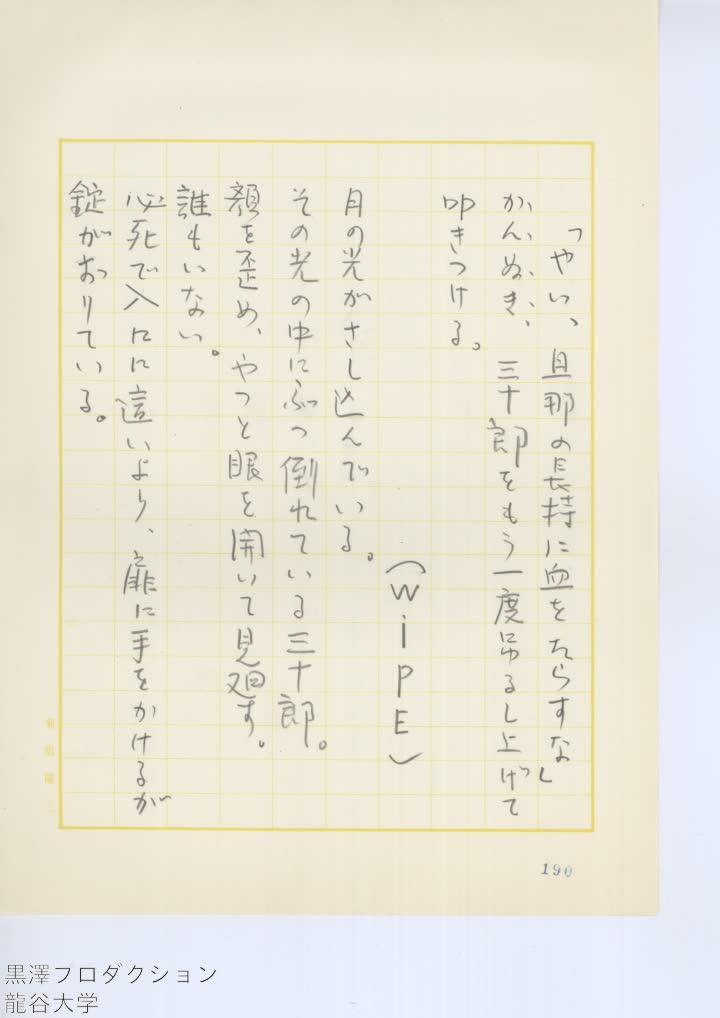 「やい、旦那の長持に血をたらすな」
かんぬき、三十郎をもう一度吊るし上げて
叩きつける。
(WiPE)
月の光がさし込んでいる。
その光の中にぶっ倒れている三十郎。
顔を歪め、やっと眼を開いて見廻す。
誰もいない。
必死で入口に這いより、扉に手をかけるが
錠がおりている。
190
黒澤プロダクション
龍谷大学